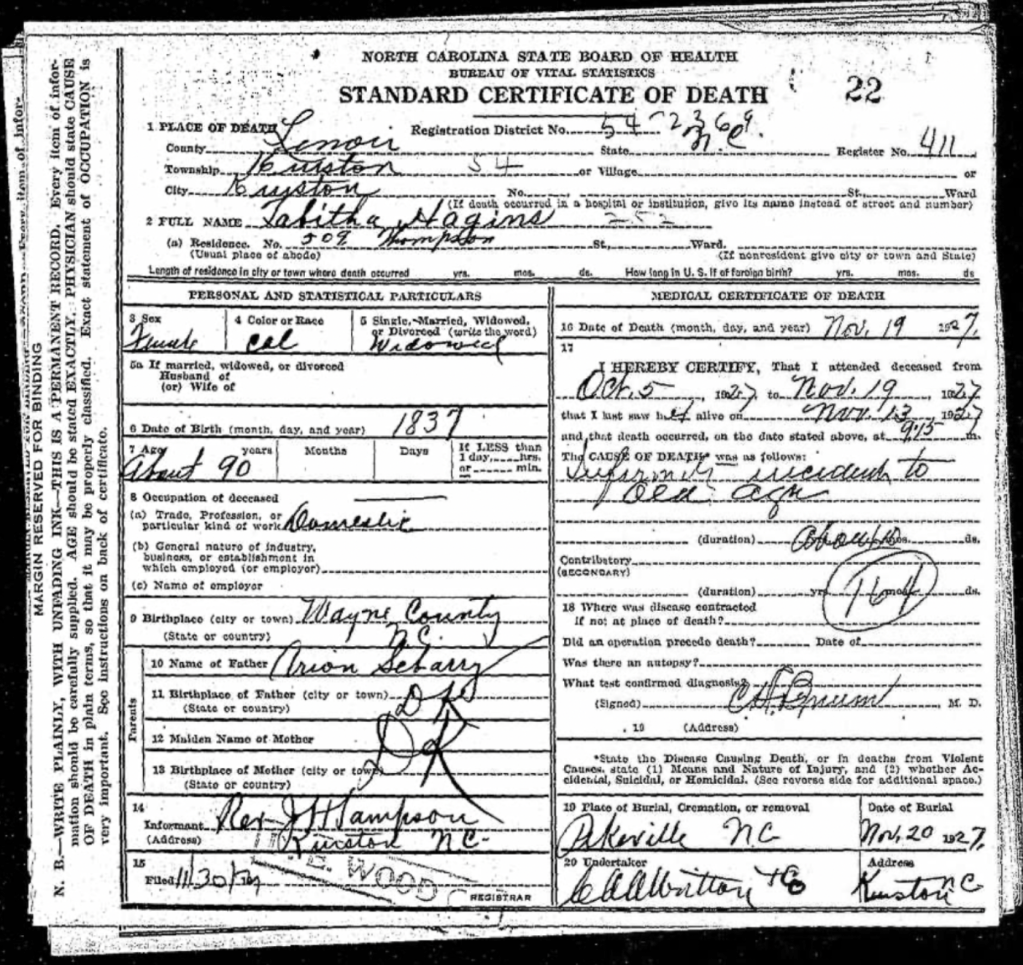 NORTH CAROLINA STATE BOARD OF HEALTH
BUREAU OF VITAL STATISTICS
STANDARD CERTIFICATE OF DEATH
22
1 PLACE OF DEATH
Registration District No. 54-2369
County Lenoir State N.C. Register No. 411
Township Kinston 54 or Village or
City Kinston No. St. Ward
(If death occurred in a hospital or institution, give its name instead of street and number)
2 FULL NAME Tabitha Hagins 252
(a) Residence. No. 509 Thompson St, Ward.
(Usual place of abode) (If nonresident give city or town and State)
Length of residence in city or town where death occurred yrs. mos. ds. How long in U. S. if of foreign birth? yrs. mos. ds
PERSONAL AND STATISTICAL PARTICULARS
3 Sex
Female
4 Color or Race
Col
5 Single, Married, Widowed,
or Divorced (write the word)
Widowed
5a If married, widowed, or divorced
Husband of
(or) Wife of
6 Date of Birth (month, day, and year) 1837
7 Age years Months Days If LESS than
1 day, hrs.
or min.
About 90
8 Occupation of deceased
(a) Trade, Profession, or
particular kind of work Domestic
(b) General nature of industry,
business, or establishment in
which employed (or employer)
(c) Name of employer
9 Birthplace (city or town) Wayne County
(State or country) N.C.
Parents
10 Name of Father Orion
11 Birthplace of Father (city or town) DK
(State or country)
12 Maiden Name of Mother DK
13 Birthplace of Mother (city or town)
(State or country)
14
Informant Rev J H Sampson
(Address) Kinston N C
15
Filed 11/30/27
WOOD
REGISTRAR
MEDICAL CERTIFICATE OF DEATH
16 Date of Death (month, day, and year) Nov. 19 1927.
17
I HEREBY CERTIFY, That I attended deceased from
Oct. 5, 1927 to Nov. 19, 1927
that I last saw her alive on Nov. 13 1927
and that death occurred, on the date stated above, at 9:15 m.
The CAUSE OF DEATH* was as follows:
Infirmity incident to
old age
(duration) ds.
Contributory
(SECONDARY)
(duration) yrs mos ds.
164
18 Where was disease contracted
if not at place of death?
Did an operation precede death? Date of
Was there an autopsy?
What test confirmed diagnosis?
(Signed) M. D.
, 19 (Address)
*State the Disease Causing Death, or in deaths from Violent
Causes, state (1) Means and Nature of Injury, and (2) whether Ac-
cidental, Suicidal, or Homicidal. (See reverse side for additional space.)
19 Place of Burial, Cremation, or removal
Pikeville NC
Date of Burial
Nov. 20 1927.
20 Undertaker
Address
Kinston NC
MARGIN RESERVED FOR BINDING
N. B.—WRITE PLAINLY, WITH UNFADING INK—THIS IS A PERMANENT RECORD. Every item of infor-
mation should be carefully supplied. AGE should be stated EXACTLY. PHYSICIAN should state CAUSE
OF DEATH in plain terms, so that it may be properly classified. Exact statement of OCCUPATION is
very important. See instructions on back of certificate.